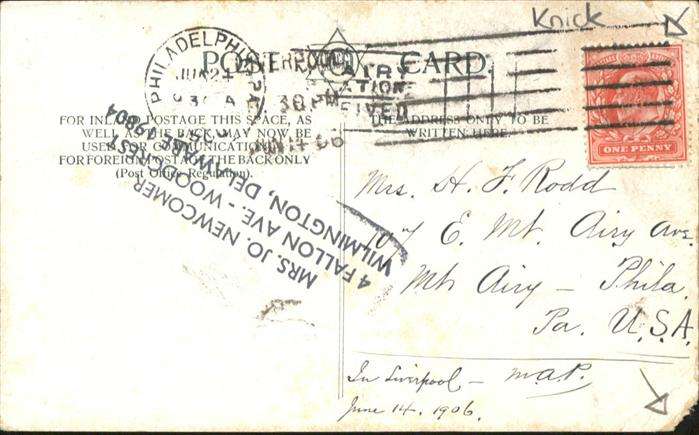 Knick
POST CARD.
PHILADELPHIA
JUN 24
30 PM
FOR INLAND POSTAGE THIS SPACE, AS
WELL AS THE BACK, MAY NOW BE
USED FOR COMMUNICATION.
FOR FOREIGN POSTAGE THE BACK ONLY
(Post Office Regulation).
THE ADDRESS ONLY TO BE
WRITTEN HERE.
ONE PENNY
MRS. JO. NEWCOMER
4 FALLON AVE. - WOODCREST
WILMINGTON, DELAWARE 19804
Mrs. H. F. Rodd
107 E. Mt. Airy Ave.
Mt Airy - Phila.
Pa. U.S.A.
In Liverpool - M.A.P.
June 14. 1906.